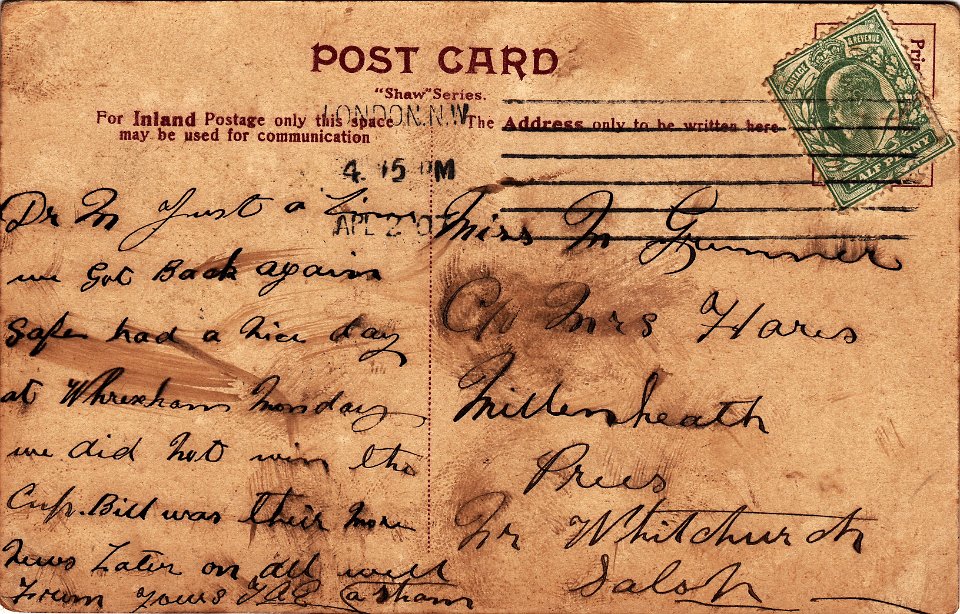 POST CARD
"Shaw" Series.
For Inland Postage only this space
may be used for communication
The Address only to be written here
LONDON. N.W
4. 15 PM
APL 2
POSTAGE & REVENUE
HALFPENNY
Dr M Just a Line
we Got Back again
Safe had a Nice day
at Whrexham Monday
we did Not win the
Cup. Bill was their More
News Later on all well
From Yours
Miss M Grummer
C/o Mrs Hares
Millenheath
Prees
Nr Whitchurch
Salop